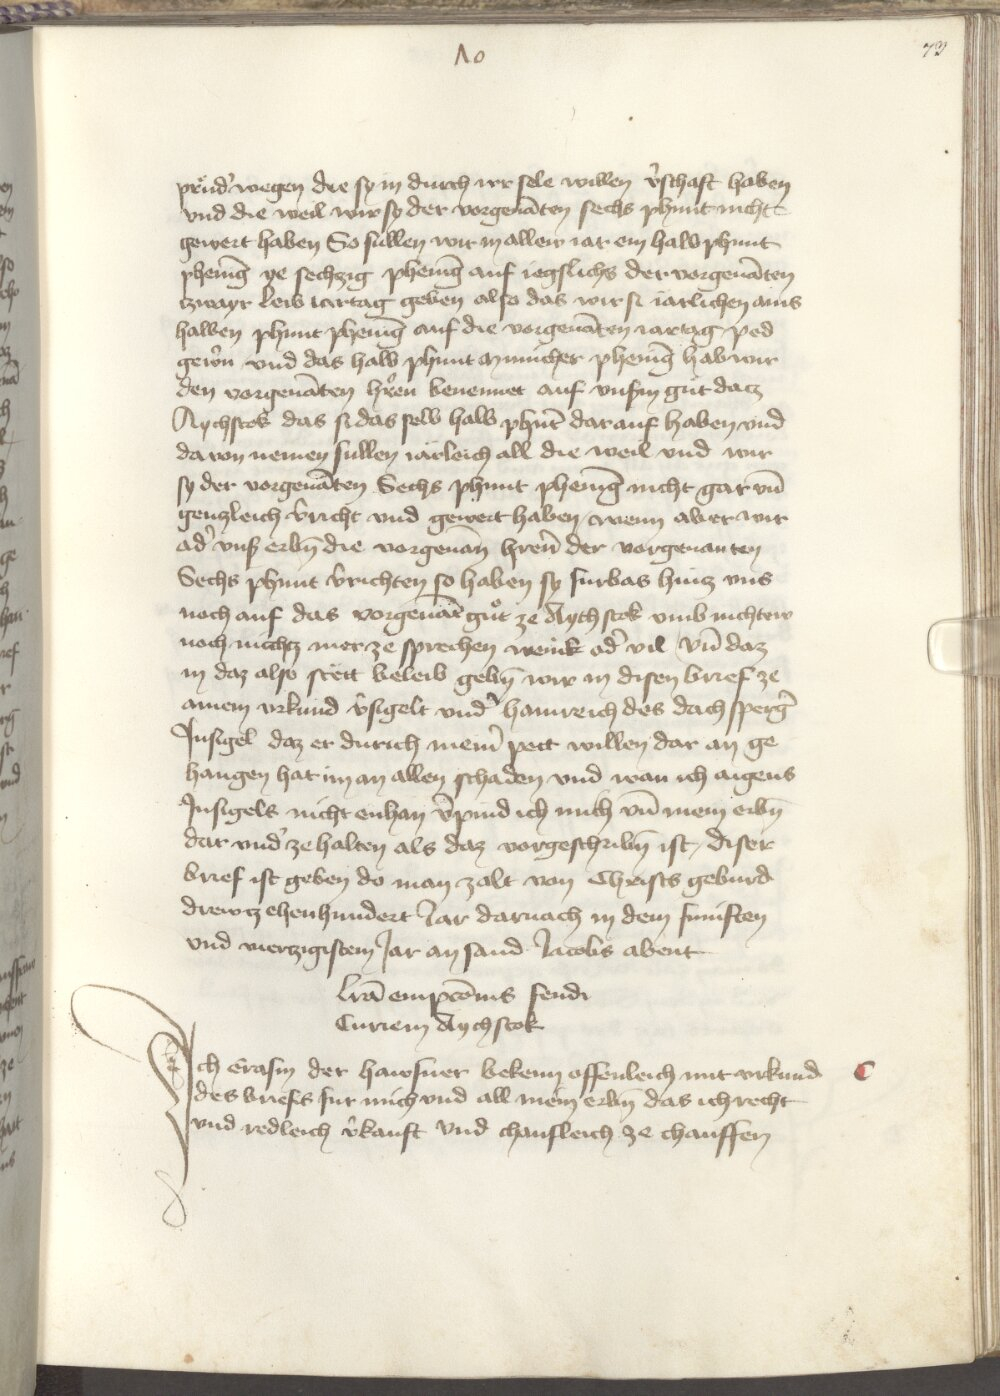 10
73
prüd' wegen die sy in durch irr sele willen v̄schaft haben
vnd die weil wir sy der vorgenāten sechs phunt nicht
gewert haben So süllen wir in allew iar ein halb phunt
phenig̅ ye sechzig phenig̅ auf iegslichs der vorgenāten
tzwayr leib iartag geben also das wir si iärlichen ains
halben phunt phenig̅ auf die vorgenāten iartag ped
gewn̄ vnd das halb phunt münicher phenig̅ hab wir
den vorgenāten hr̄en benennet auf vnsm̄ güt datz
Aychstok das si das selb halb phūt darauf haben vnd
da von nemen sullen iärleich all die weil vnd wir
sy der vorgenāten Sechs phunt phenig̅ nicht gar vn̄
gentzleich v̄richt vnd gewert haben / wenn aber wir
od' vnß erbn̄ die vorgenan̄ hren̄ der vorgenanten
Sechs phunt v̄richten so haben sy furbas hintz vns
noch auf das vorgenāt guͦt ze Aychstok vmb nichtew
noch nichtz mer ze sprechen wenik od' vil Vn̄ daz
in daz also stett beleib gebn̄ wir in disen brief ze
ainem vrkund v̄sigelt vnd' hainreich des dachsperg'
Insigel daz er durich mein' pett willen dar an ge
hangen hat im an allen schaden vnd wan ich aigens
Insigels nicht enhan v̄pind ich mich vn̄ mein erbn̄
dar vnd' ze halten als daz vorgeschribn̄ ist / diser
brief ist geben do man zalt von Christs geburd
drewtzehenhundert Iar darnach in dem fünften
vnd viertzigistem Jar an sand Jacobs abent
Lrā empcōnis feudi
Curiem Aychstok
Ich Erasm der hawsner bekenn offenleich mit vrkund
des briefs fur mich vnd all mein erbn̄ das ich recht
vnd redleich v̄kauft vnd chaufleich ze chauffen